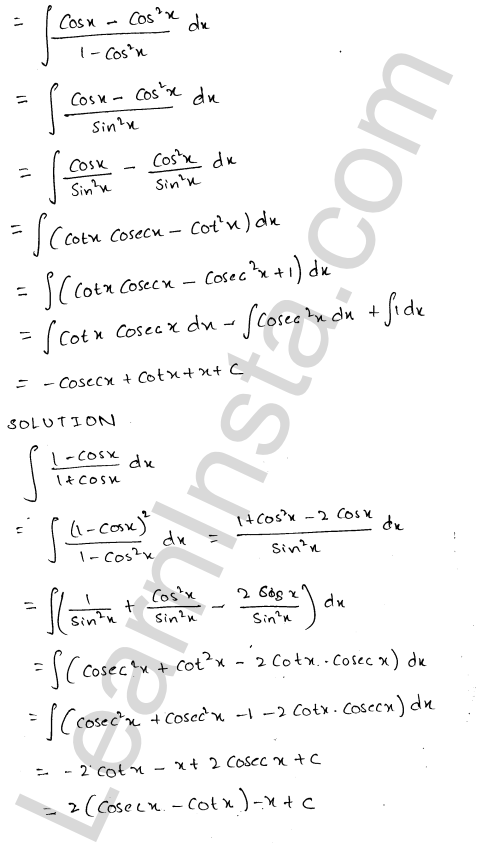 = ∫ (Cosx − Cos²x)/(1 − Cos²x) dx
= ∫ (Cosx − Cos²x)/(Sin²x) dx
= ∫ Cosx/Sin²x − Cos²x/Sin²x dx
= ∫ (Cotx Cosecx − Cot²x) dx
= ∫ (Cotx Cosecx − Cosec²x + 1) dx
= ∫ Cotx Cosecx dx − ∫ Cosec²x dx + ∫ 1 dx
= −Cosecx + Cotx + x + C
SOLUTION
∫ (1 − Cosx)/(1 + Cosx) dx
= ∫ (1 − Cosx)²/(1 − Cos²x) dx = (1 + Cos²x − 2 Cosx)/(Sin²x) dx
= ∫ (1/Sin²x + Cos²x/Sin²x − 2 Cos x/Sin²x) dx
= ∫ (Cosec²x + Cot²x − 2 Cotx . Cosec x) dx
= ∫ (Cosec²x + Cosec²x − 1 − 2 Cotx . Cosecx) dx
= − 2 Cotx − x + 2 Cosec x + C
= 2 (Cosecx − Cotx) − x + C
LearnInsta.com